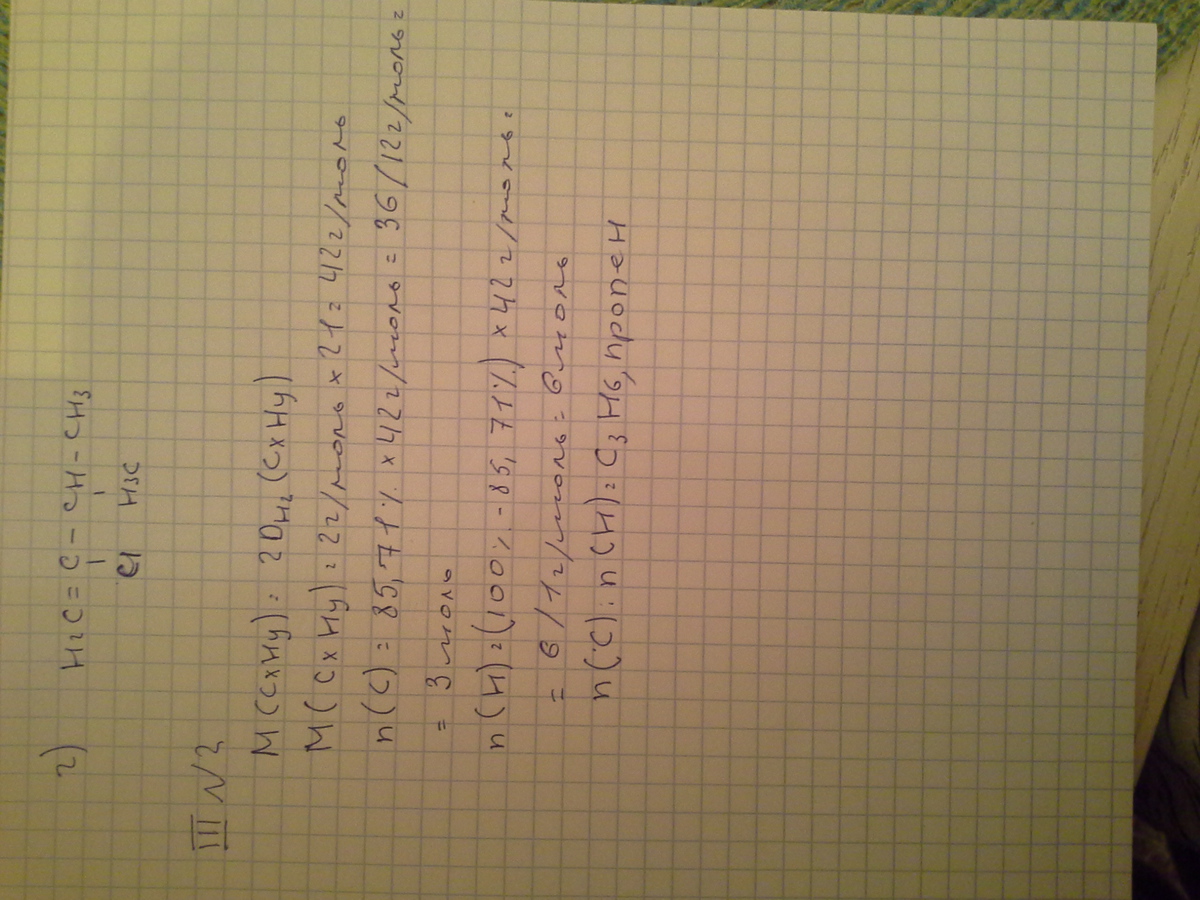 г) H₂C = C - CH - CH₃
Cl H₃C
III №2
M(CxHy) = 2D_H₂(CxHy)
M(CxHy) = 2г/моль x 21 = 42г/моль
n(C) = 85,71% x 42г/моль = 36/12г/моль =
= 3 моль
n(H) = (100% - 85,71%) x 42г/моль =
= 6/1г/моль = 6моль
n(C) : n(H) = C₃H₆, пропен